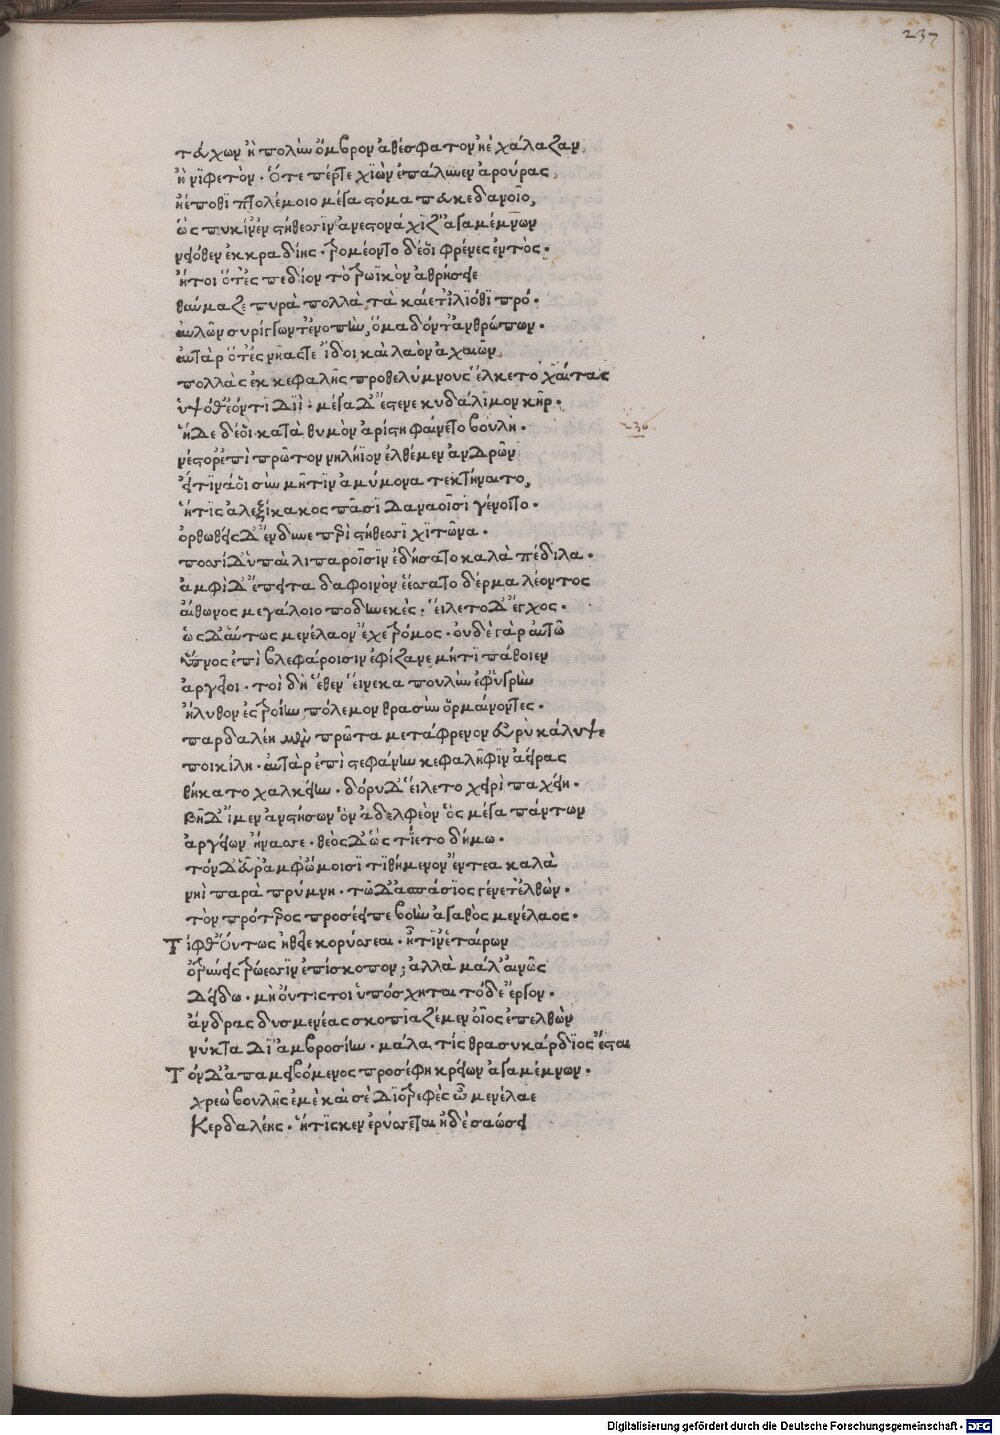 237
τεύχων ἢ πολὺν ὄμβρον ἀθέσφατον ἠὲ χάλαζαν,
ἢ νιφετὸν· ὅτε πέρ τε χιὼν ἐπάλυνεν ἀρούρας,
ἠέ ποθι πτολέμοιο μέγα στόμα πευκεδανοῖο,
ὡς πυκίν' ἐν στήθεσσιν ἀνεστονάχιζ' ἀγαμέμνων
νειόθεν ἐκ κραδίης· τρομέοντο δέ οἱ φρένες ἐντός·
ἤτοι ὅτ' ἐς πεδίον τὸ τρωϊκὸν ἀθρήσειε
θαύμαζε πυρὰ πολλὰ, τὰ καίετ' ἰλιόθι πρό·
αὐλῶν συρίγγων τ' ἐνοπὴν, ὅμαδόν τ' ἀνθρώπων·
αὐτὰρ ὅτ' ἐς νῆάς τε ἴδοι καὶ λαὸν ἀχαιῶν,
πολλὰς ἐκ κεφαλῆς προθελύμνους ἕλκετο χαίτας
ὑψόθ' ἐόντι διῒ· μέγα δ' ἔστενε κυδάλιμον κῆρ·
ἥδε δέ οἱ κατὰ θυμὸν ἀρίστη φαίνετο βουλή·
νέστορ' ἐπὶ πρῶτον νηλήϊον ἐλθέμεν ἀνδρῶν
εἴ τινά οἱ σὺν μῆτιν ἀμύμονα τεκτήναιτο,
ἥτις ἀλεξίκακος πᾶσι δαναοῖσι γένοιτο·
ὀρθωθεὶς δ' ἔνδυνε περὶ στήθεσσι χιτῶνα·
ποσσὶ δ' ὑπὰι λιπαροῖσιν ἐδήσατο καλὰ πέδιλα·
ἀμφὶ δ' ἔπειτα δαφοινὸν ἑέσσατο δέρμα λέοντος
αἴθωνος μεγάλοιο ποδηνεκές· εἵλετο δ' ἔγχος·
ὡς δ' αὔτως μενέλαον ἔχε τρόμος· οὐδὲ γὰρ αὐτῶ
ὕπνος ἐπὶ βλεφάροισιν ἐφίζανε μή τι πάθοιεν
ἀργεῖοι· τοὶ δὴ ἕθεν εἵνεκα πουλὺν ἐφ' ὑγρὴν
ἤλυθον ἐς τροίην πόλεμον θρασὺν ὁρμαίνοντες·
παρδαλέη μὲν πρῶτα μετάφρενον εὐρὺ κάλυψε
ποικίλη· αὐτὰρ ἐπὶ στεφάνην κεφαλῆφιν ἀείρας
θήκατο χαλκείην· δόρυ δ' εἵλετο χειρὶ παχείη·
βῆ δ' ἴμεν ἀνστήσων ὃν ἀδελφεὸν ὃς μέγα πάντων
ἀργείων ἤνασσε· θεὸς δ' ὣς τίετο δήμω·
τόν δ' εὗρ' ἀμφ' ὤμοισι τιθήμενον ἔντεα καλὰ
νηῒ παρὰ πρύμνη· τῶ δ' ἀσπάσιος γένετ' ἐλθών·
τὸν πρότερος προσέειπε βοὴν ἀγαθὸς μενέλαος·
Τίφθ' οὕτως ἠθεῖε κορύσσεαι· ἦ τιν' ἑταίρων
ὀτρυνεῖς τρώεσσιν ἐπίσκοπον; ἀλλὰ μάλ' αἰνῶς
δείδω· μὴ οὔ τίς τοι ὑπόσχηται τόδε ἔργον·
ἄνδρας δυσμενέας σκοπιαζέμεν οἶος ἐπελθὼν
νύκτα δι' ἀμβροσίην· μάλα τίς θρασυκάρδιος ἔσται
Τὸν δ' ἀπαμειβόμενος προσέφη κρείων ἀγαμέμνων·
χρεὼ βουλῆς ἐμὲ καὶ σὲ διοτρεφὲς ὦ μενέλαε
Κερδαλέης· ἥτις κεν ἐρύσσεται ἠδὲ σαώσει
Digitalisierung gefördert durch die Deutsche Forschungsgemeinschaft - DFG